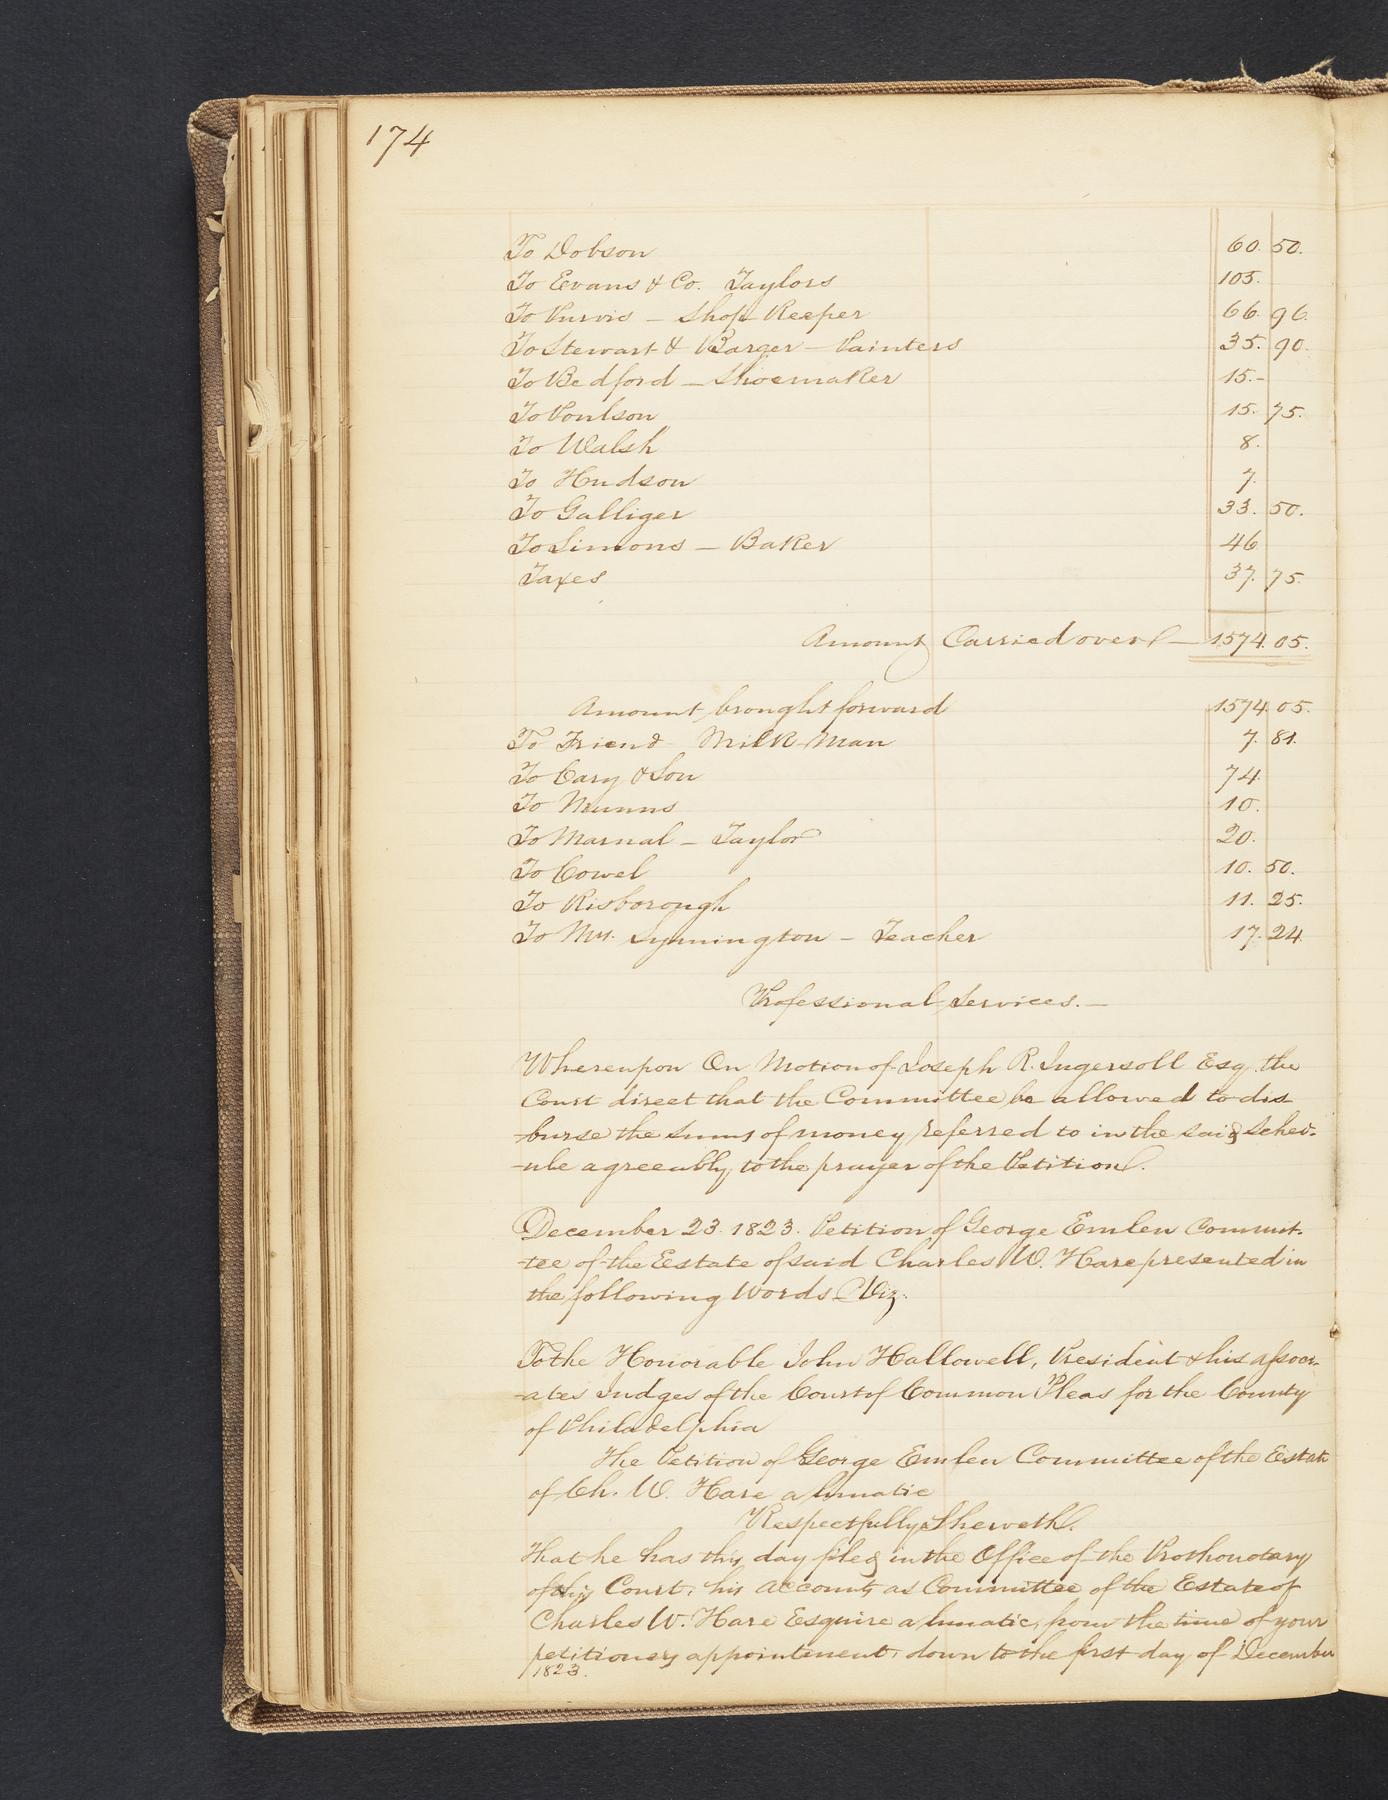 174
To Dobson 60.50.
To Evans & Co. Taylors 105.
To Purvis - Shop Keeper 66.96.
To Stewart & Barger - Painters 35.90.
To Bedford - Shoemaker 15.-
To Poulson 15.75.
To Walsh 8.
To Hudson 7.
To Galliger 33.50.
To Simons - Baker 46
Taxes 37.75.
Amount Carried over - 1574.05.
Amount brought forward 1574.05.
To Friend Milk-Man 7.81.
To Cary & Son 74
To Munns 10.
To Marnal - Taylor 20.
To Cowel 10.50.
To Risborough 11.25.
To Mrs. Symington - Teacher 17.24
Professional Services.-
Whereupon On Motion of Joseph R. Ingersoll Esq. the
Court direct that the Committee be allowed to dis
-burse the sums of money referred to in the said Sched-
-ule agreeably to the prayer of the Petition.
December 23. 1823. Petition of George Emlen Commit-
-tee of the Estate of said Charles W. Hare presented in
the following Words Viz:
To the Honorable John Hallowell, President & his associ-
-ates Judges of the Court of Common Pleas for the County
of Philadelphia
The Petition of George Emlen Committee of the Estate
of Ch. W. Hare a lunatic
Respectfully Sheweth.
That he has this day filed in the Office of the Prothonotary
of this Court, his accounts as Committee of the Estate of
Charles W. Hare Esquire a lunatic, from the time of your
petitioners appointment, down to the first day of December
1823.